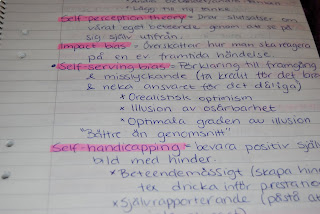 * Lägg till ny tanke
Self perception theory = Drar slutsatser om
vårat eget beteende genom att se på
sig själv utifrån.
Impact bias = Överskattar hur man ska reagera
på en ev framtida händelse.
• Self serving bias = Förklaring till framgång
& misslyckande (ta kredit för det bra
& neka ansvaret för det dåliga)
* Orealistisk optimism
* Illusion av osårbarhet
* Optimala graden av illusion
"Bättre än genomsnitt"
Self handicapping = bevara positiv själv
bild med hinder.
* Beteendemässigt (skapa hin
tex dricka inför prestatio
* Självrapporterande (påstå at